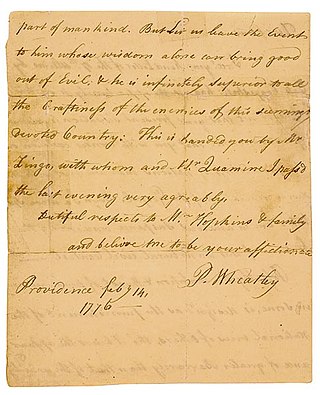 part of mankind. But let us leave the Event
to him whose wisdom alone can bring good
out of Evil, & he is infinitely superior to all
the Craftiness of the enemies of this seemingly
devoted Country: This is handed you by Mr
Zingo, with whom and Mr. Quamine I pass'd
the last evening very agreably,
Dutiful respects to Mrs Hopkins & family
and believe me to be your affectionate
P. Wheatley
Providence Feby 14,
1776